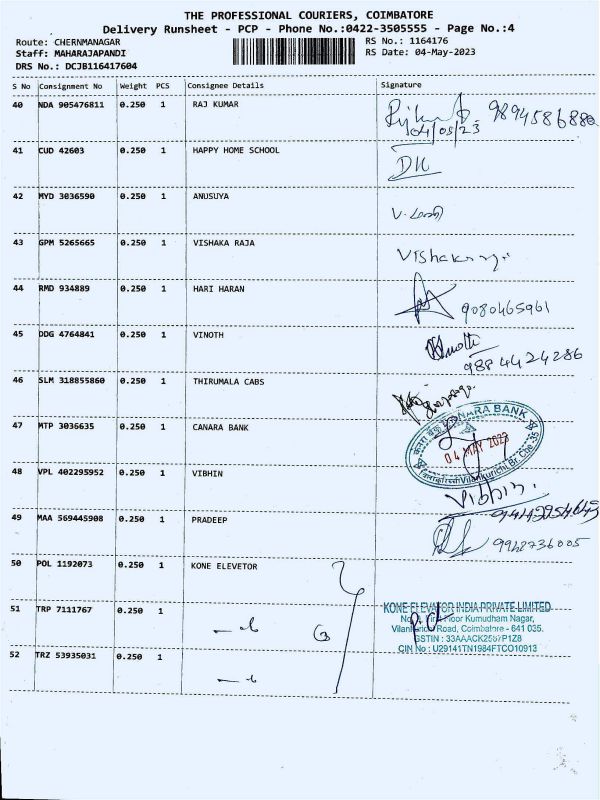 THE PROFESSIONAL COURIERS, COIMBATORE
Delivery Runsheet - PCP - Phone No.:0422-3505555 - Page No.:4
Route: CHERNMANAGAR RS No.: 1164176
Staff: MAHARAJAPANDI RS Date: 04-May-2023
DRS No.: DCJB116417604
S No Consignment No Weight PCS Consignee Details Signature
40 NDA 905476811 0.250 1 RAJ KUMAR 9894586880
04/05/23
41 CUD 42603 0.250 1 HAPPY HOME SCHOOL
42 MYD 3036590 0.250 1 ANUSUYA
43 GPM 5265665 0.250 1 VISHAKA RAJA
44 RMD 934889 0.250 1 HARI HARAN 9080465961
45 DDG 4764841 0.250 1 VINOTH
9884424286
46 SLM 318855860 0.250 1 THIRUMALA CABS
47 MTP 3036635 0.250 1 CANARA BANK CANARA BANK
04 MAY 2023
48 VPL 402295952 0.250 1 VIBHIN Vibhin
49 MAA 569445908 0.250 1 PRADEEP
9942736005
50 POL 1192073 0.250 1 KONE ELEVETOR
51 TRP 7111767 0.250 1 KONE ELEVATOR INDIA PRIVATE LIMITED
Floor Kumudham Nagar,
Road, Coimbatore - 641 035.
GSTIN : 33AAACK2567P1Z8
CIN No : U29141TN1984FTCO10913
52 TRZ 53935031 0.250 1